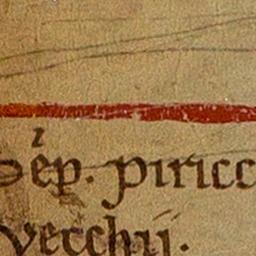 Sep. piricc
vecchij.